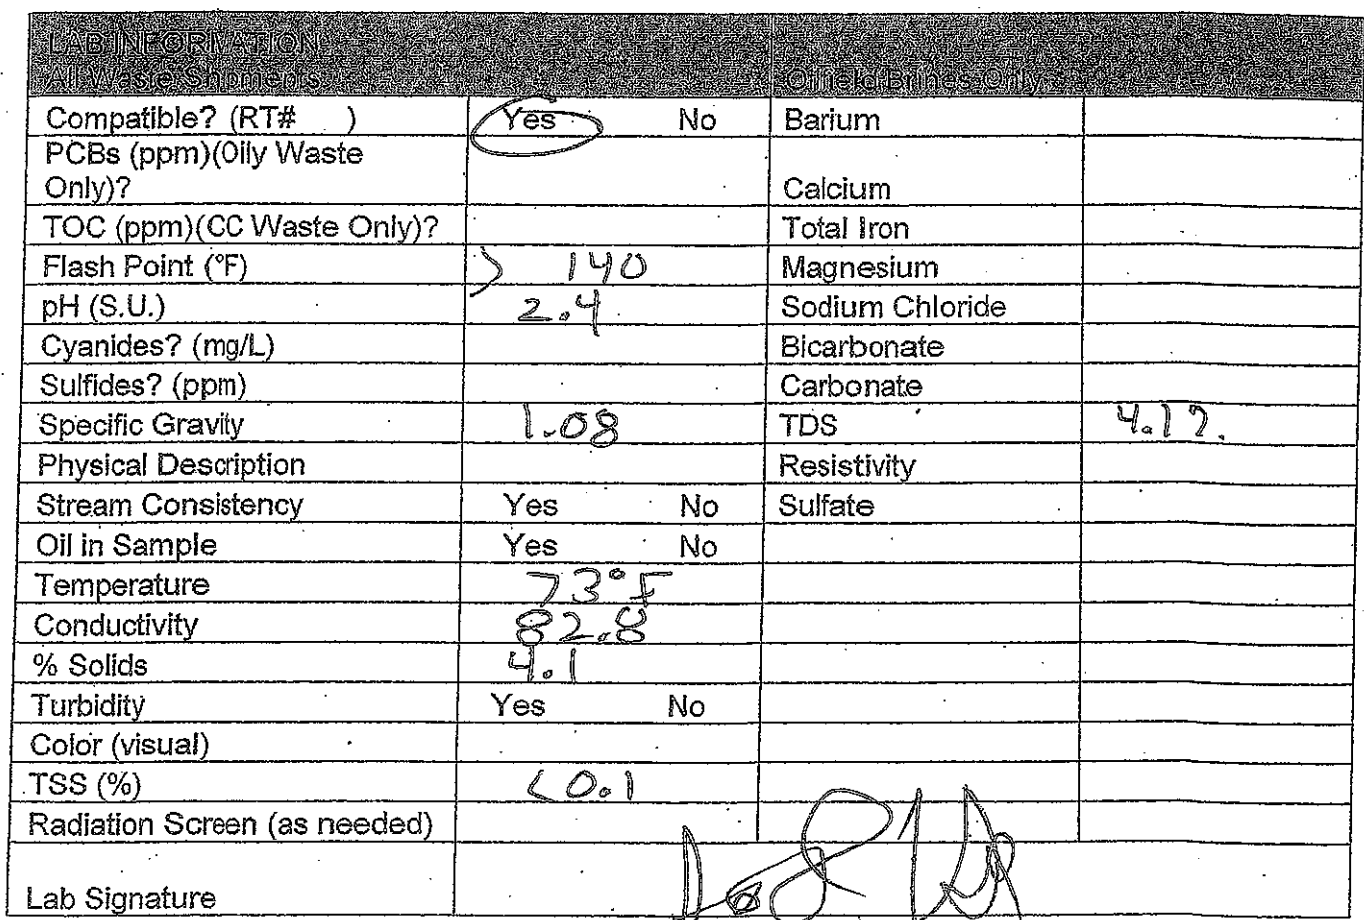 LAB INFORMATION
All Waste Shipments Oilfield Brines Only
Compatible? (RT# ) Yes No Barium
PCBs (ppm)(Oily Waste
Only)? Calcium
TOC (ppm)(CC Waste Only)? Total Iron
Flash Point (°F) > 140 Magnesium
pH (S.U.) 2.4 Sodium Chloride
Cyanides? (mg/L) Bicarbonate
Sulfides? (ppm) Carbonate
Specific Gravity 1.08 TDS
Physical Description Resistivity
Stream Consistency Yes No Sulfate
Oil in Sample Yes No
Temperature 73°F
Conductivity 82.8
% Solids 4.1
Turbidity Yes No
Color (visual)
TSS (%) <0.1
Radiation Screen (as needed)
Lab Signature